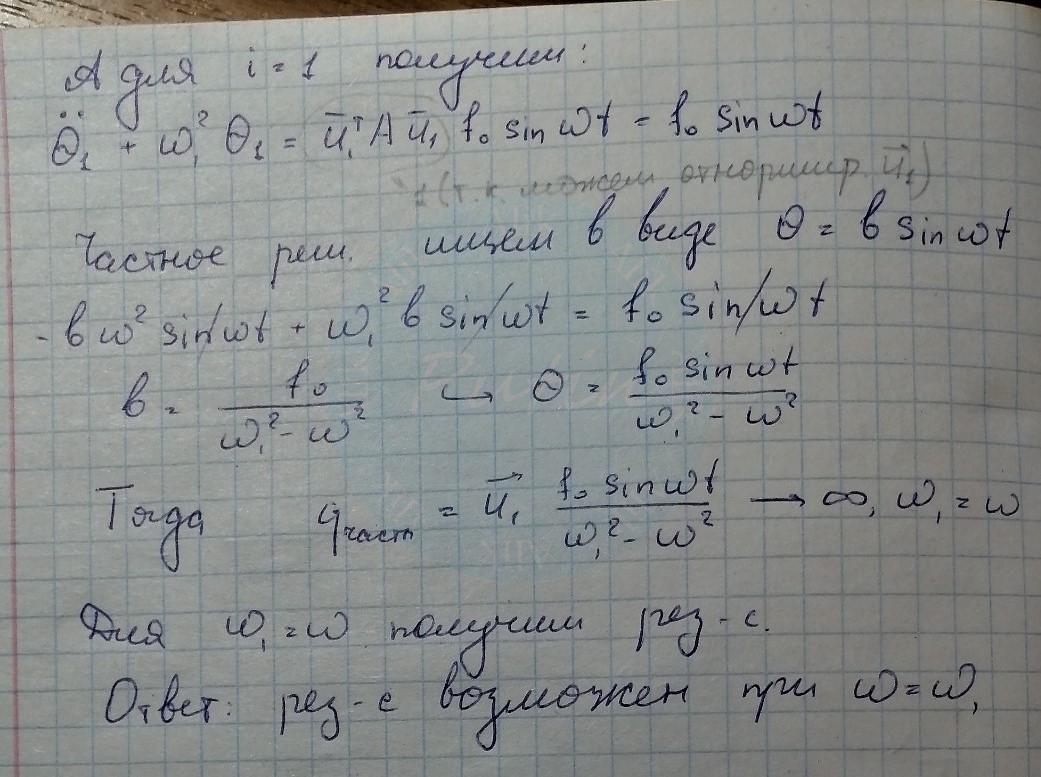 А для i = 1 получим:
Θ̈₁ + ω₁² Θ₁ = ū₁ᵀ A ū₁ f₀ sin ωt = f₀ sin ωt
1 (т.к. можем отнормир. ū₁)
Частное реш. ищем в виде Θ = b sin ωt
- b ω² sin ωt + ω₁² b sin ωt = f₀ sin ωt
b = f₀ / (ω₁² - ω²) ↪ Θ = f₀ sin ωt / (ω₁² - ω²)
Тогда q частн = u⃗₁ f₀ sin ωt / (ω₁² - ω²) → ∞, ω₁ = ω
Для ω₁ = ω получим рез-с.
Ответ: рез-с возможен при ω = ω₁